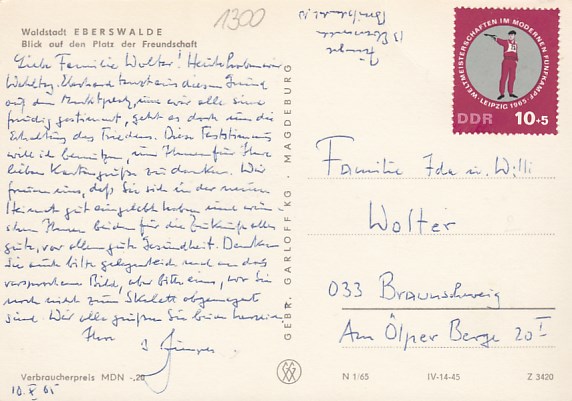 1300
Waldstadt EBERSWALDE
Blick auf den Platz der Freundschaft
Liebe Familie Wolter! Heute haben wir
Wahltag. Eberhard tanzt aus diesem Grund
auf dem Marktplatz, uns wir alle sind
freudig gestimmt, geht es doch um die
Erhaltung des Friedens. Diese Feststimmung
will ich benutzen, um Ihnen für Ihre
lieben Kartengrüße zu danken. Wir
freuen uns, daß Sie sich in der neuen
Heimat gut eingelebt haben und wün-
schen Ihnen beiden für die Zukunft alles
gute, vor allem gute Gesundheit. Denken
Sie auch bitte gelegentlich mal an das
versprochene Bild, aber bitte eins, wo Sie
noch nicht zum Skelett abgemagert
sind. Wir alle grüßen Sie beide herzlich
Ihre
Verbraucherpreis MDN -,20
10. X 65
GEBR. GARLOFF KG · MAGDEBURG
WELTMEISTERSCHAFTEN IM MODERNEN FÜNFKAMPF · LEIPZIG 1965
DDR 10+5
Familie Ida u. Willi
Wolter
033 Braunschweig
Am Ölper Berge 20 I
N 1/65 IV-14-45 Z 3420